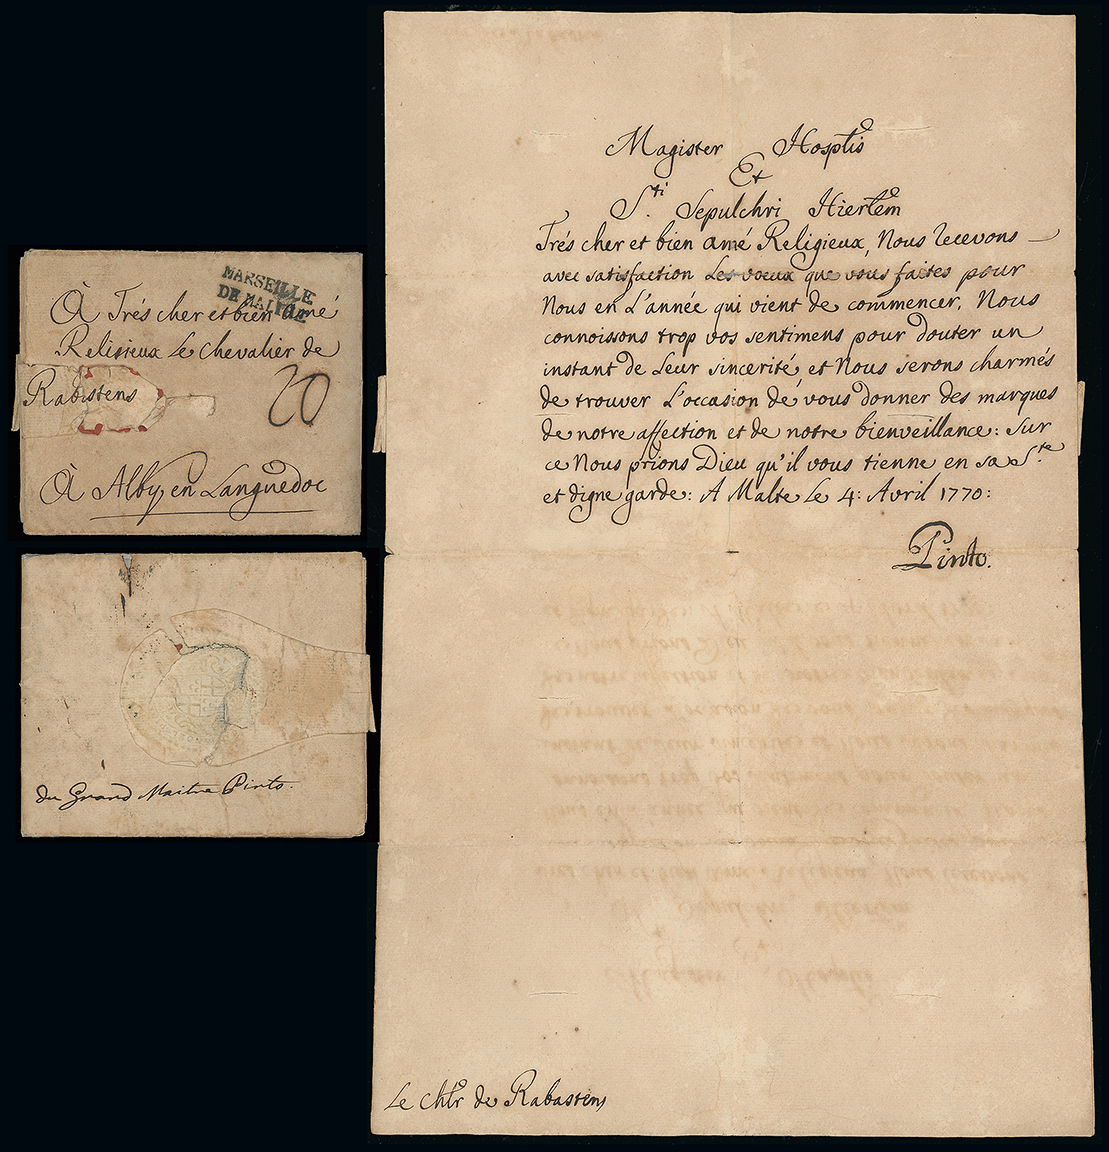 MARSEILLE
DE MALTHE
À Trés cher et bien Amé
Religieux Le Chevalier de
Rabastens
20
À Alby en Languedoc
du Grand Maitre Pinto.
Magister Hosptis
Et
S.ti Sepulchri Hierlem
Trés cher et bien Amé Religieux, Nous recevons
avec satisfaction Les voeux que vous faites pour
Nous en L'année qui vient de commencer, Nous
connoissons trop vos sentimens pour douter un
instant de Leur sincerité, et Nous serons charmés
de trouver L'occasion de vous donner des marques
de notre affection et de notre bienveillance: Sur
ce Nous prions Dieu qu'il vous tienne en sa S.te
et digne garde: A Malte Le 4: Avril 1770:
Pinto.
Le Chlr de Rabastens